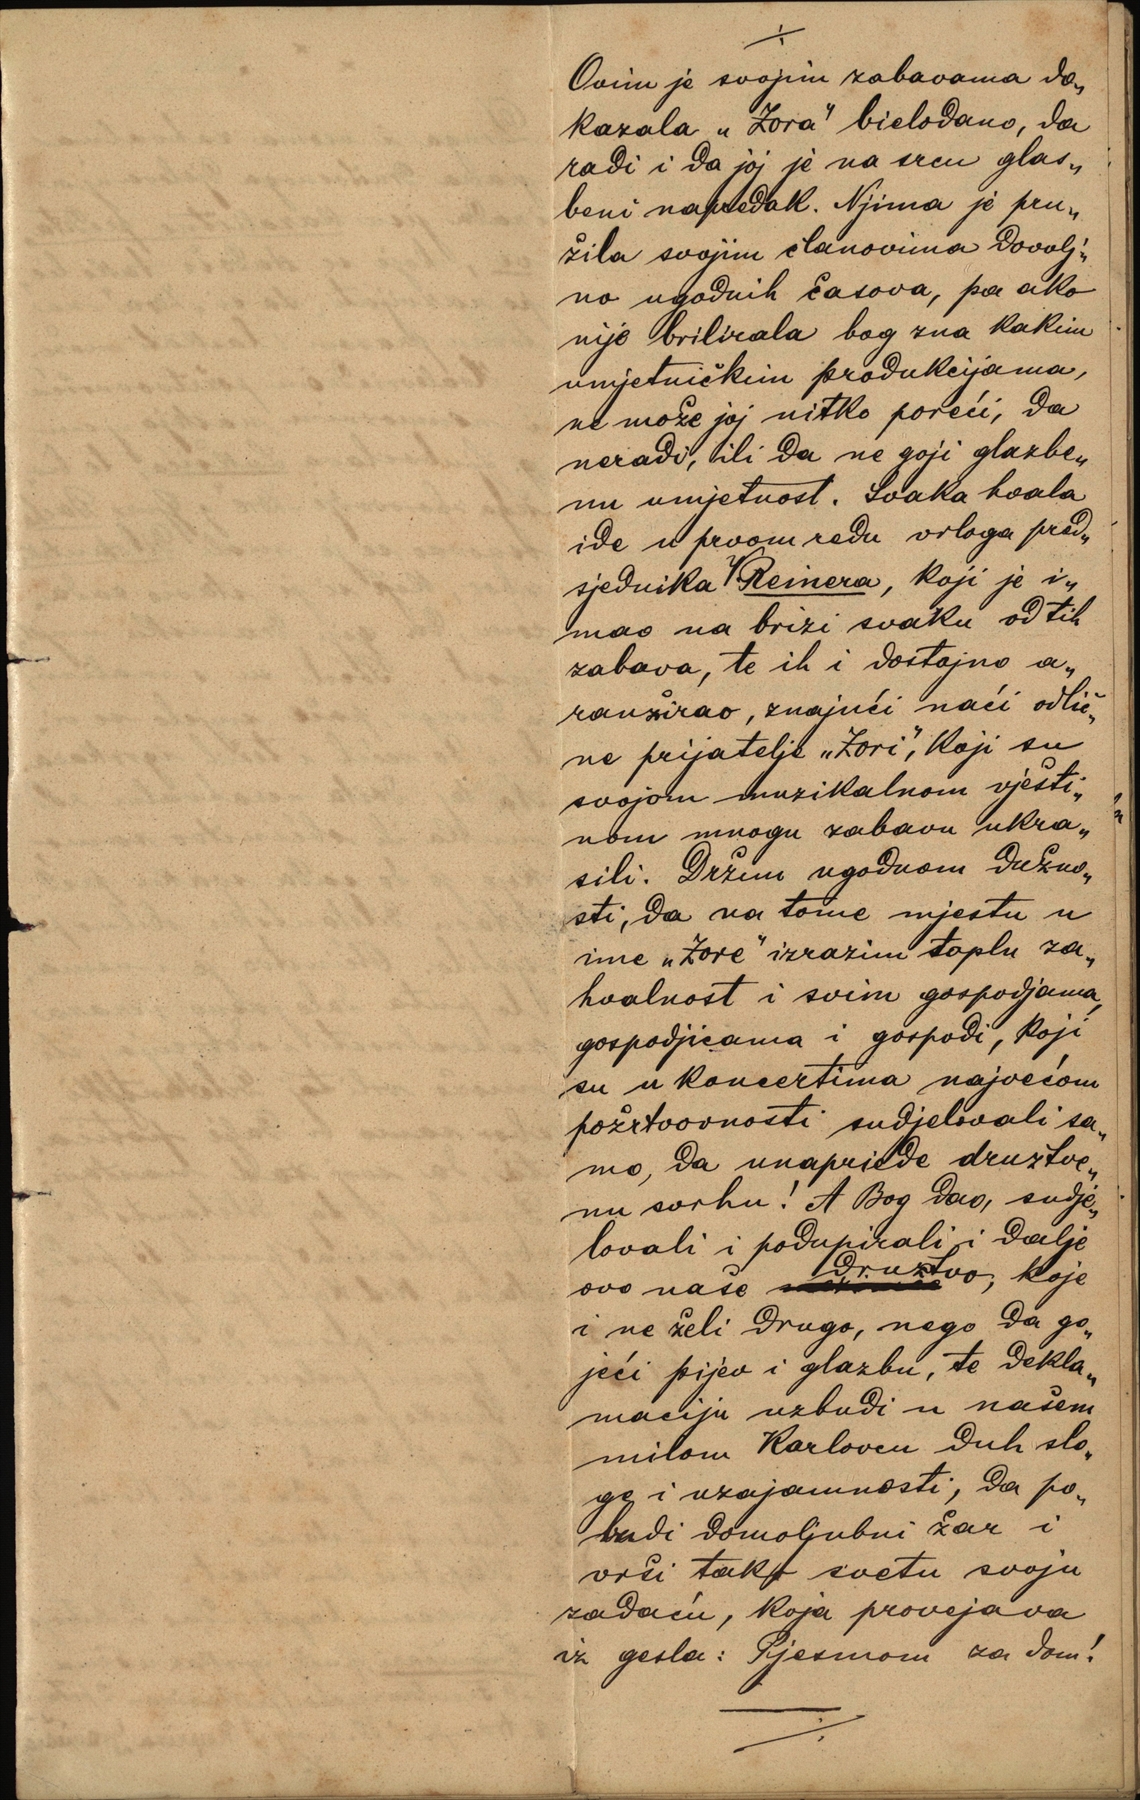 Ovim je svojim zabavama do„
kazala „Zora" bielodano, da
radi i da joj je na srcu glas„
beni napredak. Njima je pru„
žila svojim članovima dovolj„
no ugodnih časova, pa ako
nije brilirala bog zna kakim
umjetničkim produkcijama,
ne može joj nitko poreći, da
neradi, ili da ne goji glazbe„
nu umjetnost. Svaka hvala
ide u prvom redu vrloga pred„
sjednika Reinera, koji je i„
mao na brizi svaku od tih
zabava, te ih i dostojno a„
ranžirao, znajući naći odlič„
ne prijatelje „Zori", koji su
svojom muzikalnom vješti„
nom mnogu zabavu ukra„
sili. Držim ugodnom dužno„
sti, da na tome mjestu u
ime „Zore" izrazim toplu za„
hvalnost i svim gospodjama,
gospodjicama i gospodi, koji
su u koncertima najvećom
požrtvovnosti sudjelovali sa„
mo, da unapriede družtve„
nu svrhu! A Bog dao, sudje„
lovali i podupirali i dalje
ovo naše družtvo, koje
i ne želi drugo, nego da go„
jeći pijev i glazbu, te dekla„
maciju uzbudi u našem
milom Karlovcu duh slo„
ge i uzajamnosti, da po„
budi domoljubni žar i
vrši tako svetu svoju
zadaću, koja provejava
iz gesla: Pjesmom za dom!